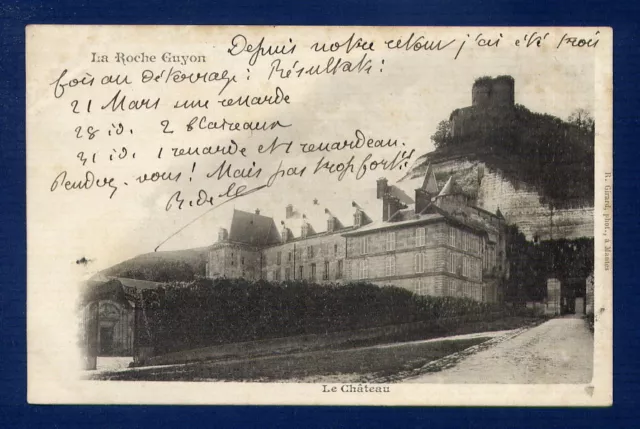 La Roche Guyon
Depuis notre retour j'ai été trois
fois au déterrage : Résultat :
21 Mars une renarde
28 id. 2 blaireaux
31 id. 1 renarde et 1 renardeau.
Pendez-vous ! Mais pas trop fort !!
R. Girard, phot., à Mantes
Le Château